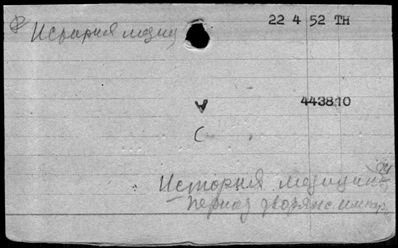 История медиц
22 4 52 TH
А
443810
С
История медицины
период дворянс. импер